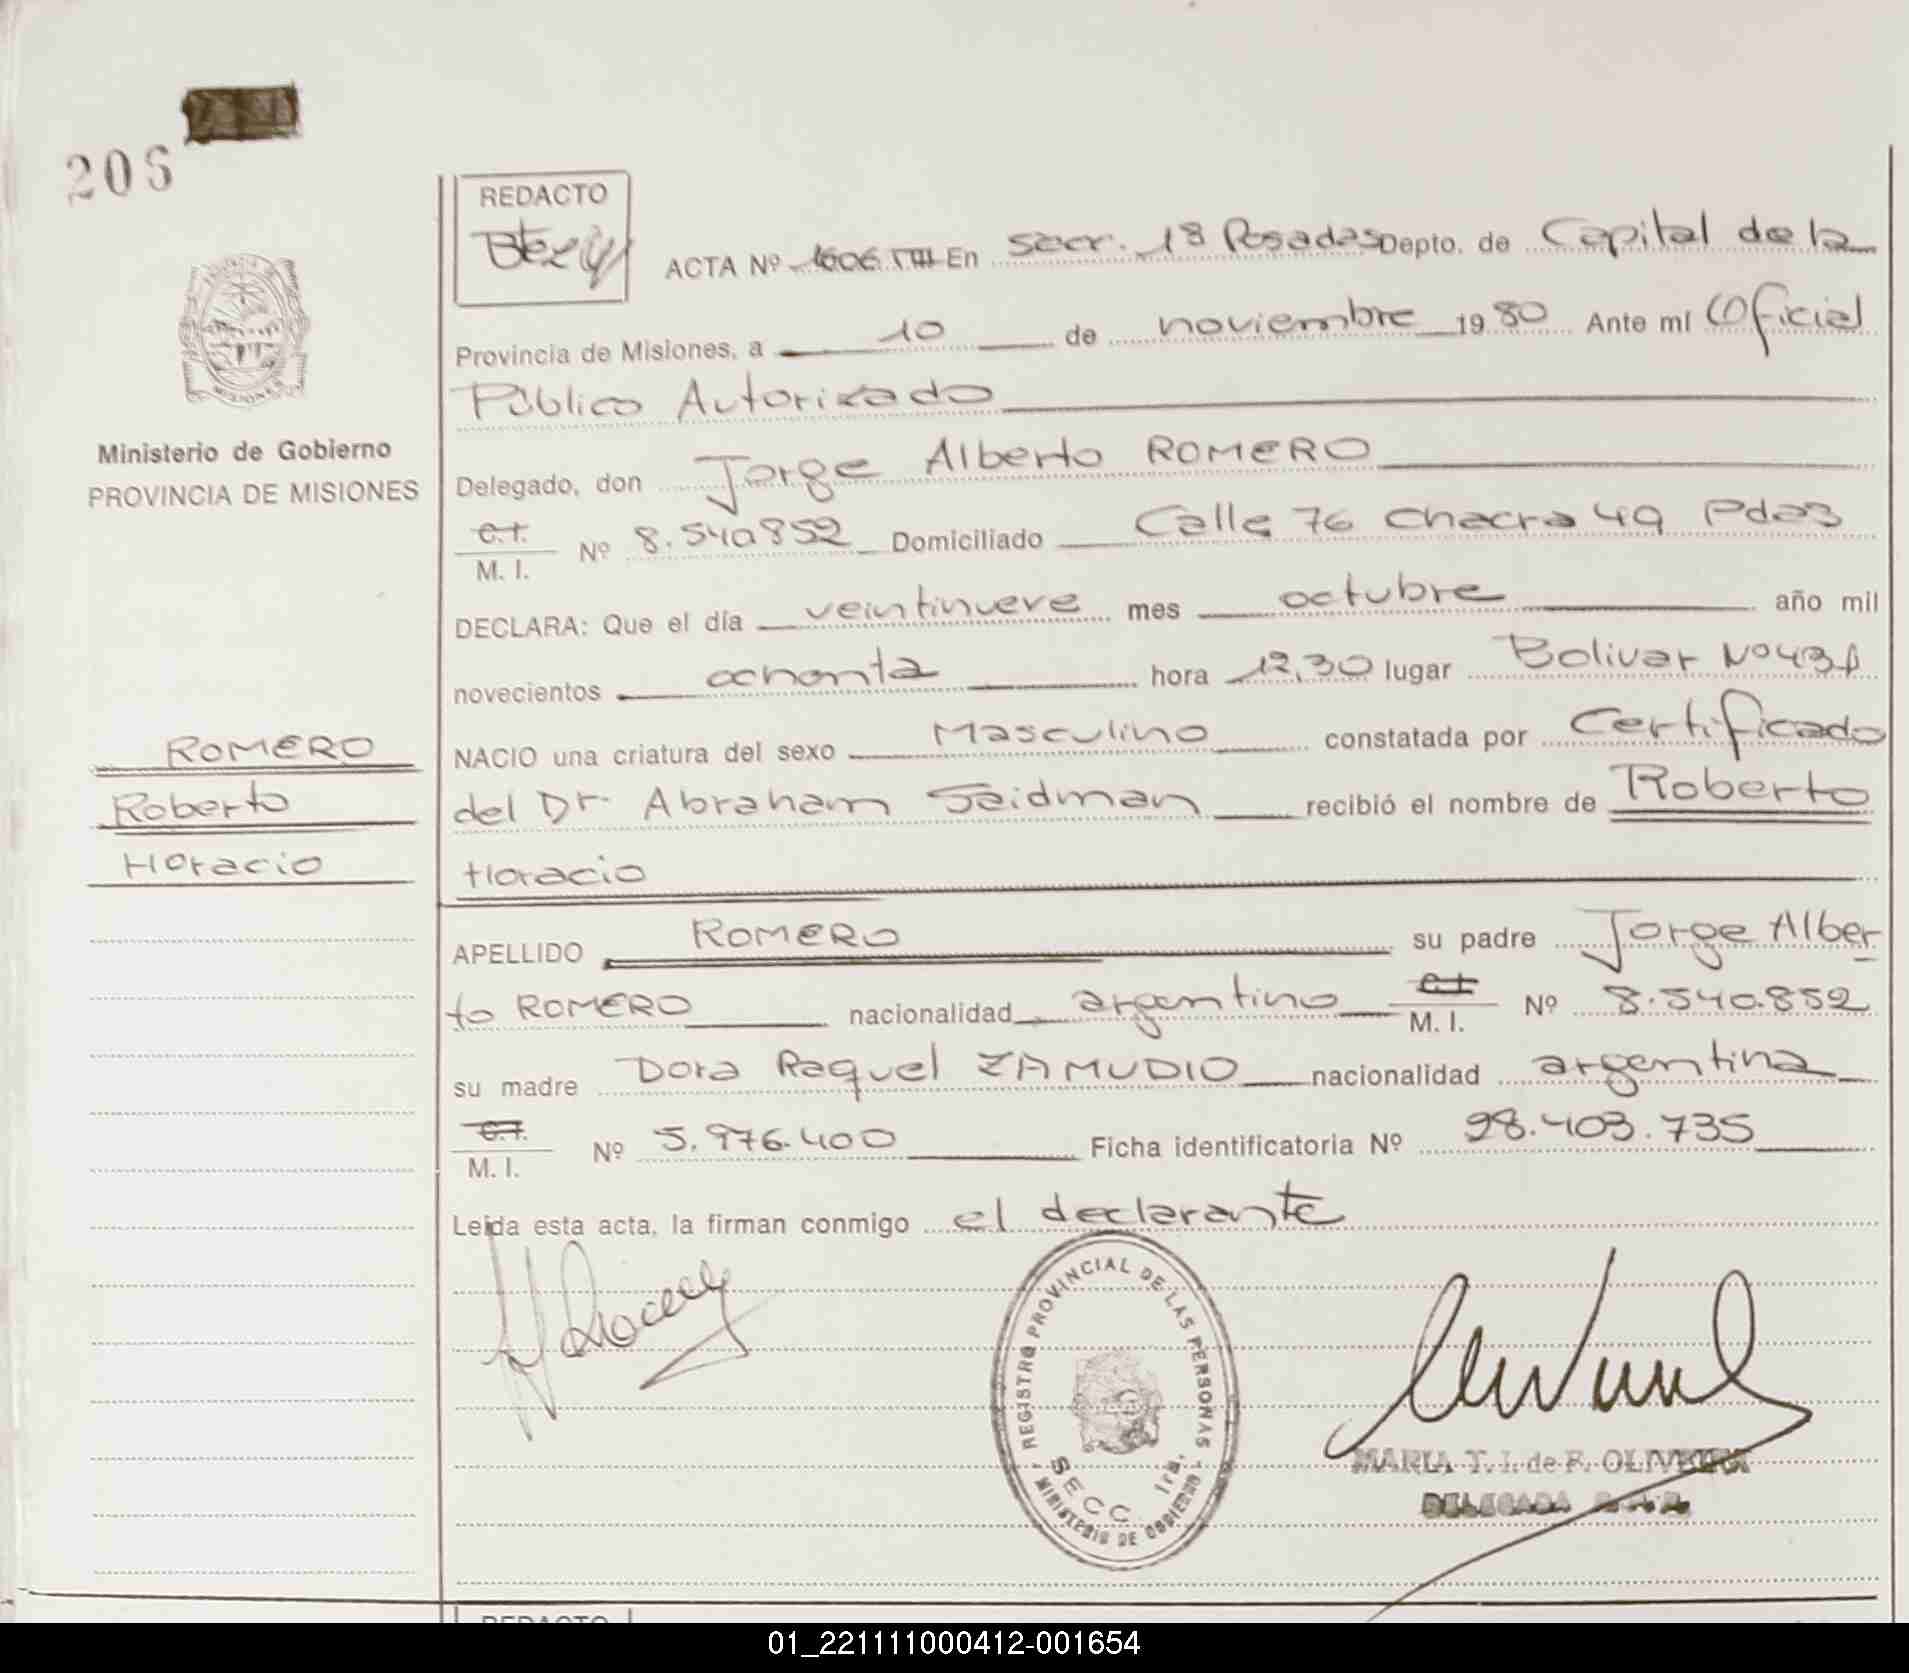 206
REDACTO
ACTA Nº 1606 TIII En Secc. 1ª Posadas Depto. de Capital de la
Provincia de Misiones, a 10 de noviembre 1980 Ante mí Oficial
Público Autorizado
Delegado, don Jorge Alberto ROMERO
C.I.
M. I. Nº 8.540852 Domiciliado Calle 76 chacra 49 Pdas
DECLARA: Que el día veintinueve mes octubre año mil
novecientos ochenta hora 12,30 lugar Bolivar Nº
NACIO una criatura del sexo Masculino constatada por Certificado
del Dr. Abraham Seidman recibió el nombre de Roberto
Horacio
APELLIDO ROMERO su padre Jorge Alber
to ROMERO nacionalidad argentino C.I.
M. I. Nº 8.540.852
su madre Dora Raquel ZAMUDIO nacionalidad argentina
C.I.
M. I. Nº 5.976.400 Ficha identificatoria Nº 28.403.735
Leida esta acta, la firman conmigo el declarante
Ministerio de Gobierno
PROVINCIA DE MISIONES
ROMERO
Roberto
Horacio
REGISTRO PROVINCIAL DE LAS PERSONAS
SECC. 1ra.
MINISTERIO DE GOBIERNO
MARIA T. I. de F. OLIVEIRA
DELEGADA
REDACTO
01_221111000412-001654